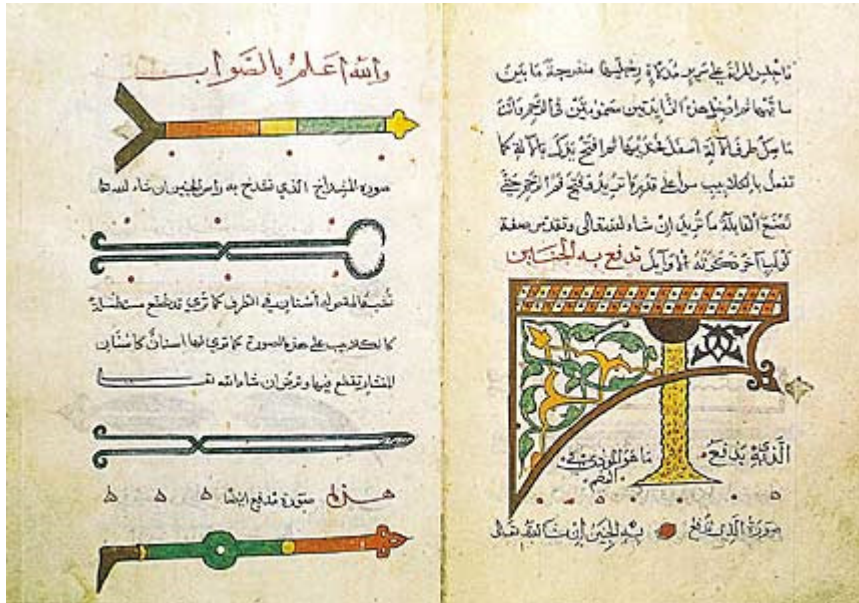 تجلس المراة على سرير مدلاة رجليها منفرجة ما بين
ساقيها ثم ادخل هذين الزايدتين مضمومتين في الرحم وانت
ماسك طرف الآلة اسفل فخذيها ثم افتح يدك بالآلة كما
تفعل بالكلاليب سوا على قدر ما تريد وفتح فم الرحم حتى
تصنع القابلة ما تريد إن شا الله تعالى صفة
لولب آخر ذكرته الاوايل تدفع به الجنين
الذي يدفع ما هو
صورة الذي تدفع به الجنين إن شا الله تعالى
والله اعلم بالصواب
صورة المشداخ الذي تشدخ به راس الجنين ان شاء الله
تشبه المقص له أسنان في الطرف كما ترى قد تصنع مستطيلة
كالكلاليب على هذه الصورة كما ترى لها اسنان كاسنان
المنشار يقطع فيها وترض ان شاء الله
صورة مدفع ايضا